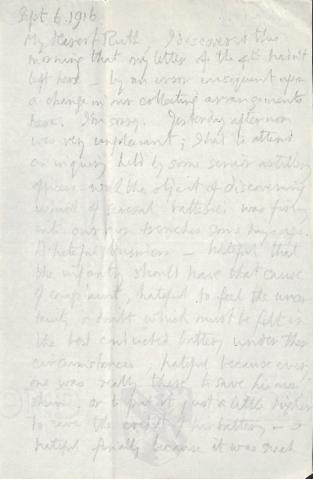 Sept 6. 1916
My dearest Ruth - I discovered this
morning that my letter of the 4th hadn't
left here - by an error consequent upon
a change in our collecting arrangements
here. I'm sorry. Yesterday afternoon
was very unpleasant; I had to attend
an inquiry held by some senior artillery
officer with the object of discovering
which of several batteries was firing
into our own trenches some days ago.
A hateful business - hateful that
the infantry should have that cause
of complaint, hateful to feel the uncer
tainty & doubt which must be felt in
the best conducted battery under those
circumstances, hateful because every
one was really there to save his own
skin, or to put it just a little higher
to save the credit of his battery - &
hateful finally because it was such